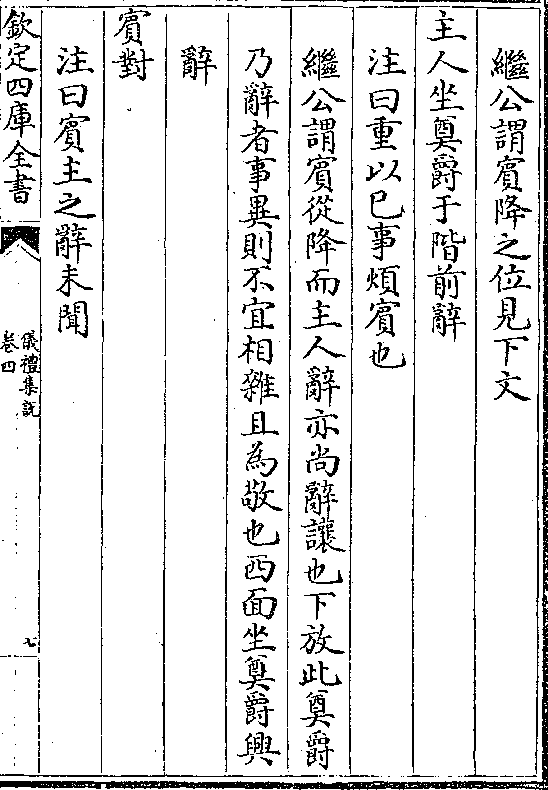 繼公謂賓降之位見下文
主人坐奠爵于階前辭
注曰重以已事煩賓也
繼公謂賓從降而主人辭亦尚辭讓也下放此奠爵
乃辭者事異則不宜相雜且為敬也西面坐奠爵興
辭
賓對
注曰賓主之辭未聞
欽定四庫全書
儀禮集說
卷四
七